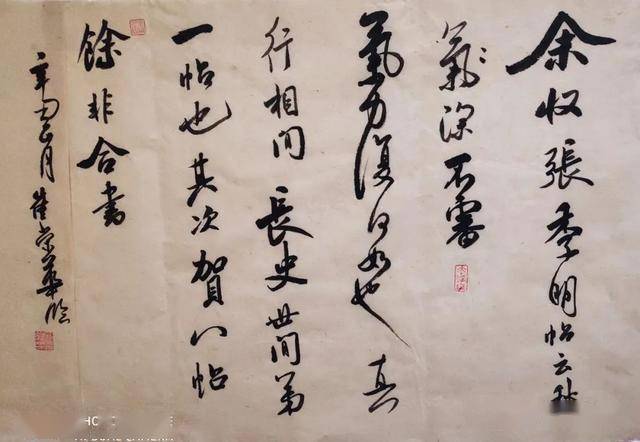 余收張季明帖云秋
氣深不審
氣力復何如也真
行相間長史世間第
一帖也其次賀八帖
餘非合書
辛丑正月崔榮華臨